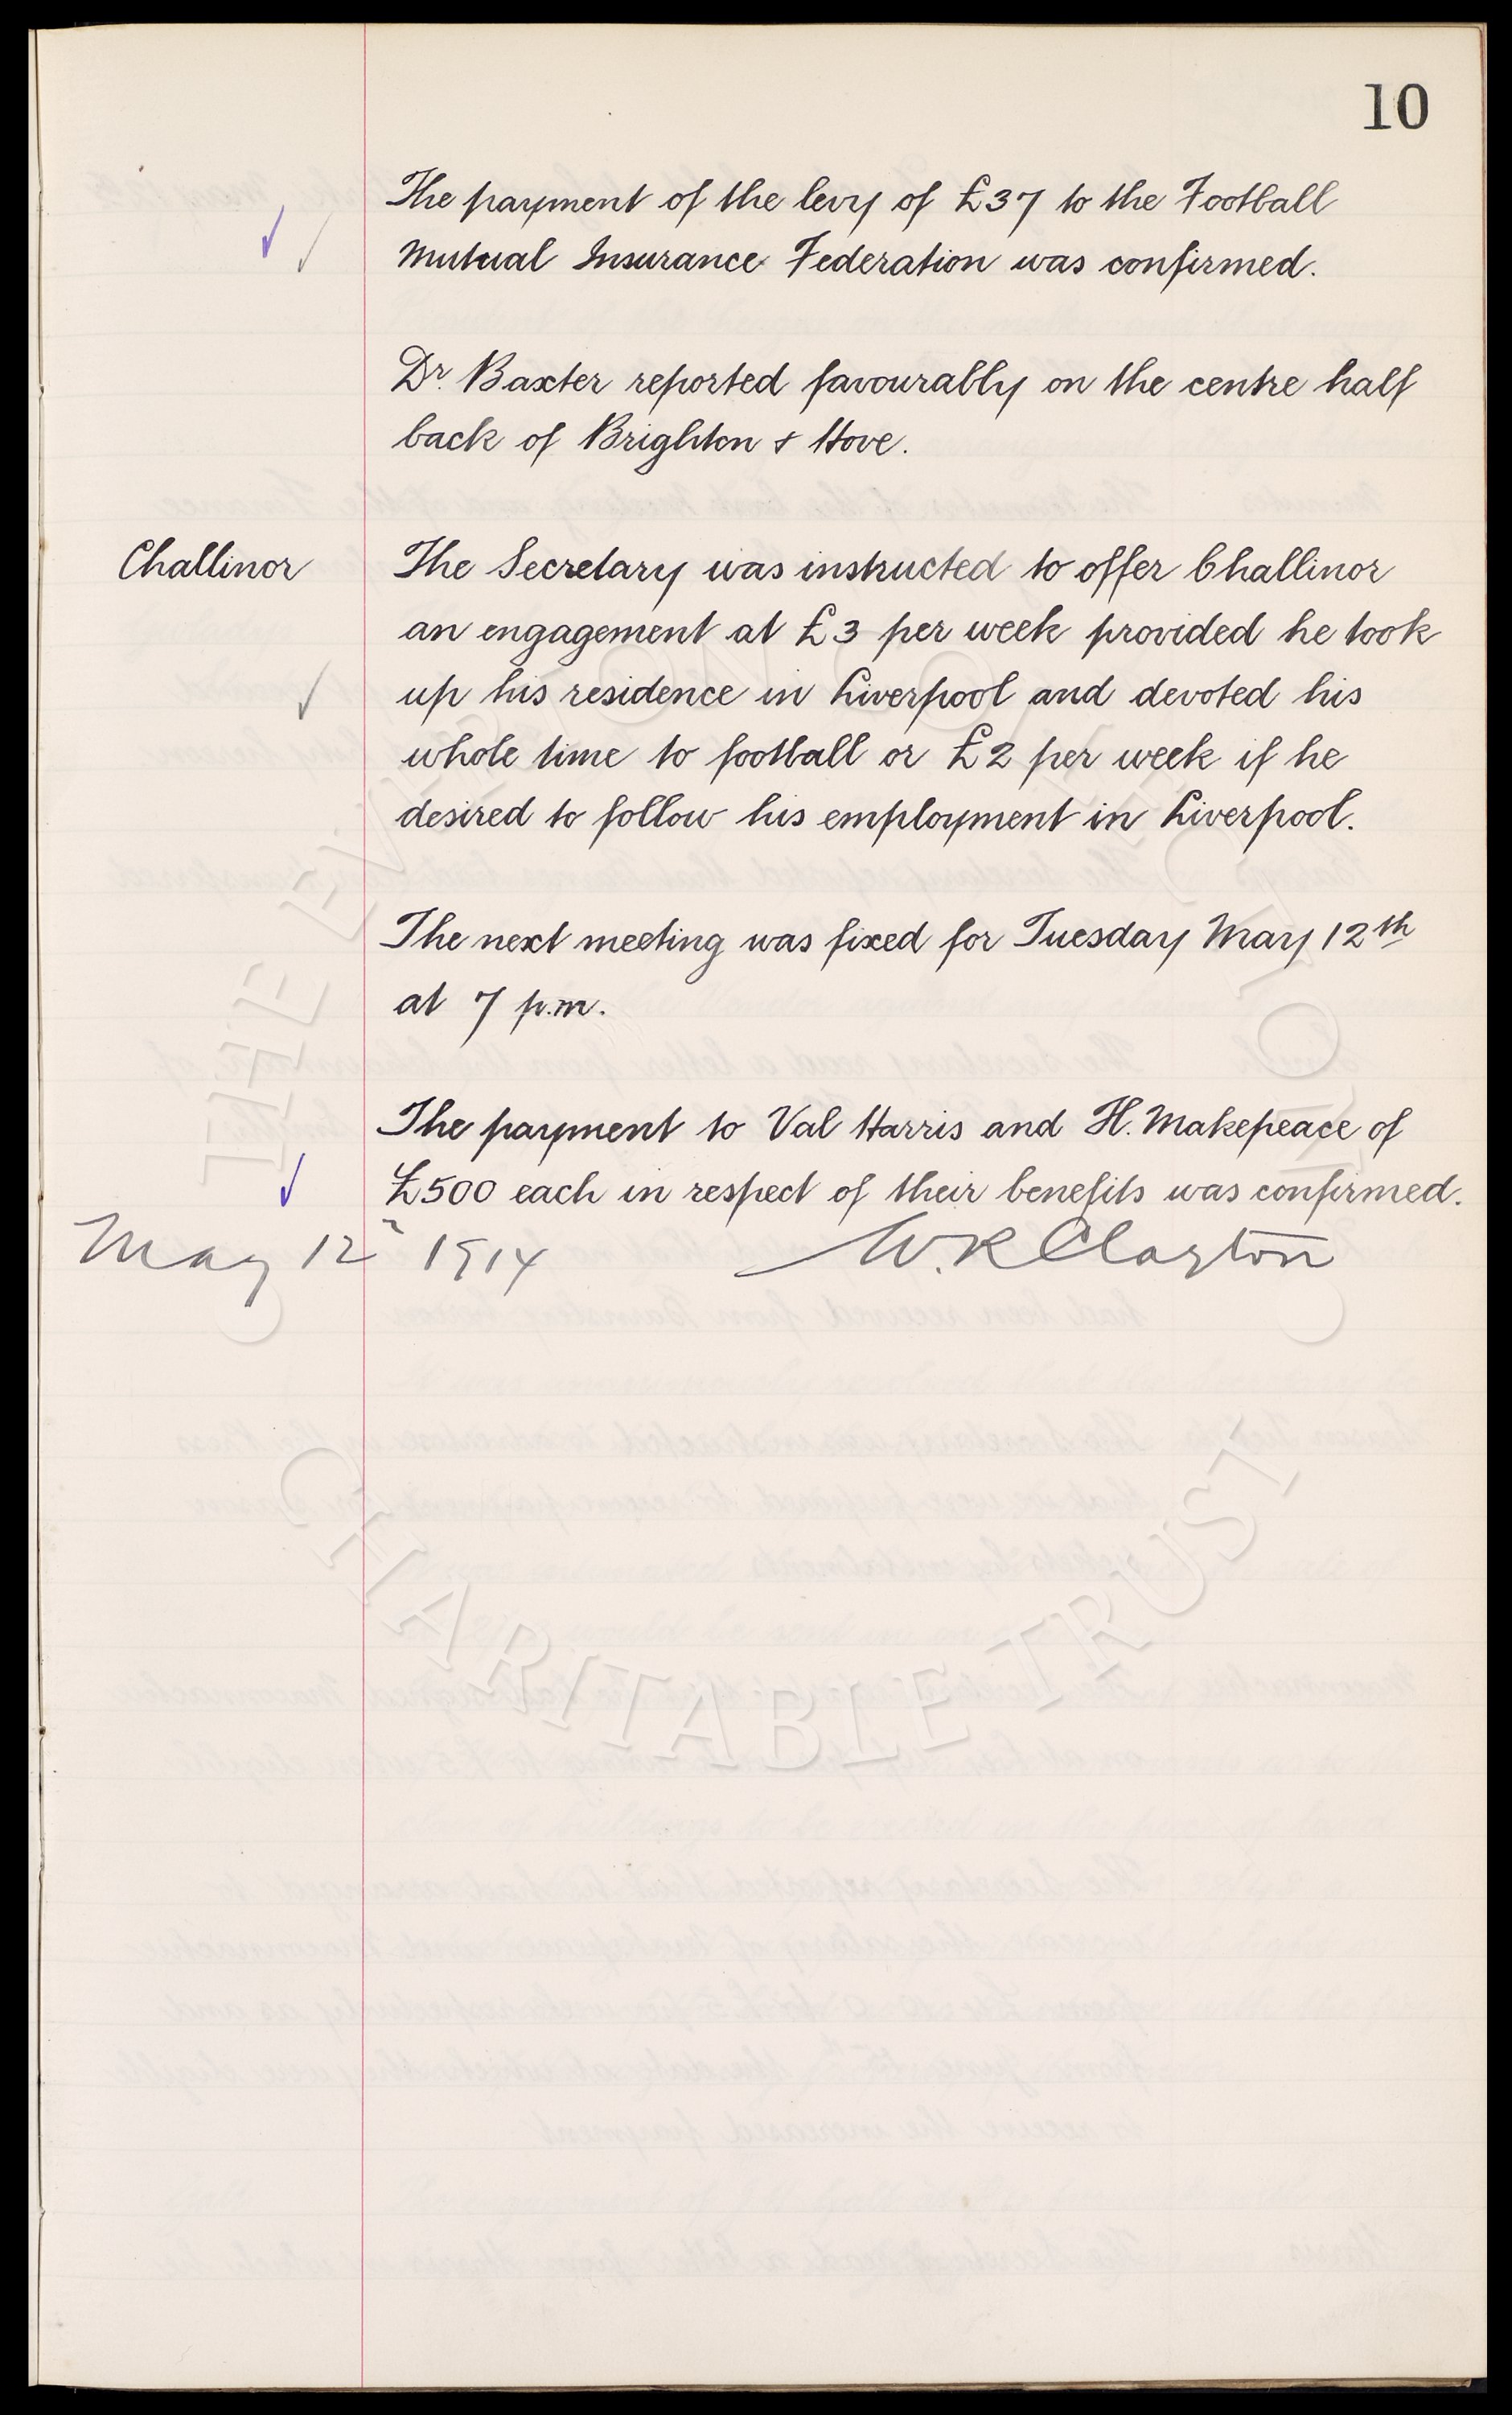 10
The payment of the levy of £37 to the Football
Mutual Insurance Federation was confirmed.
Dr. Baxter reported favourably on the centre half
back of Brighton & Hove.
Challinor
The Secretary was instructed to offer Challinor
an engagement at £3 per week provided he took
up his residence in Liverpool and devoted his
whole time to football or £2 per week if he
desired to follow his employment in Liverpool.
The next meeting was fixed for Tuesday May 12th
at 7 p.m.
The payment to Val Harris and H. Makepeace of
£500 each in respect of their benefits was confirmed.
May 12" 1914 W.R Clayton
THE EVERTON COLLECTION
CHARITABLE TRUST